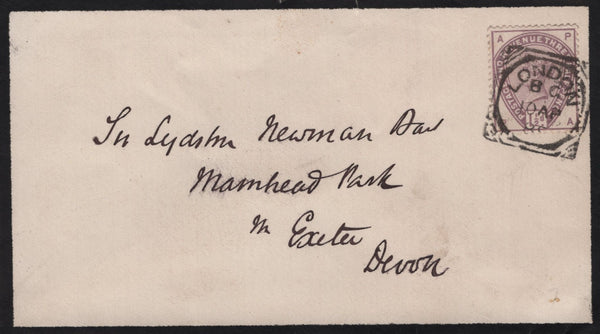 A P
POSTAGE & REVENUE THREE
LONDON
8 C
10 AM
A
Sir Lydston Newman Bar
Mamhead Park
nr Exeter
Devon